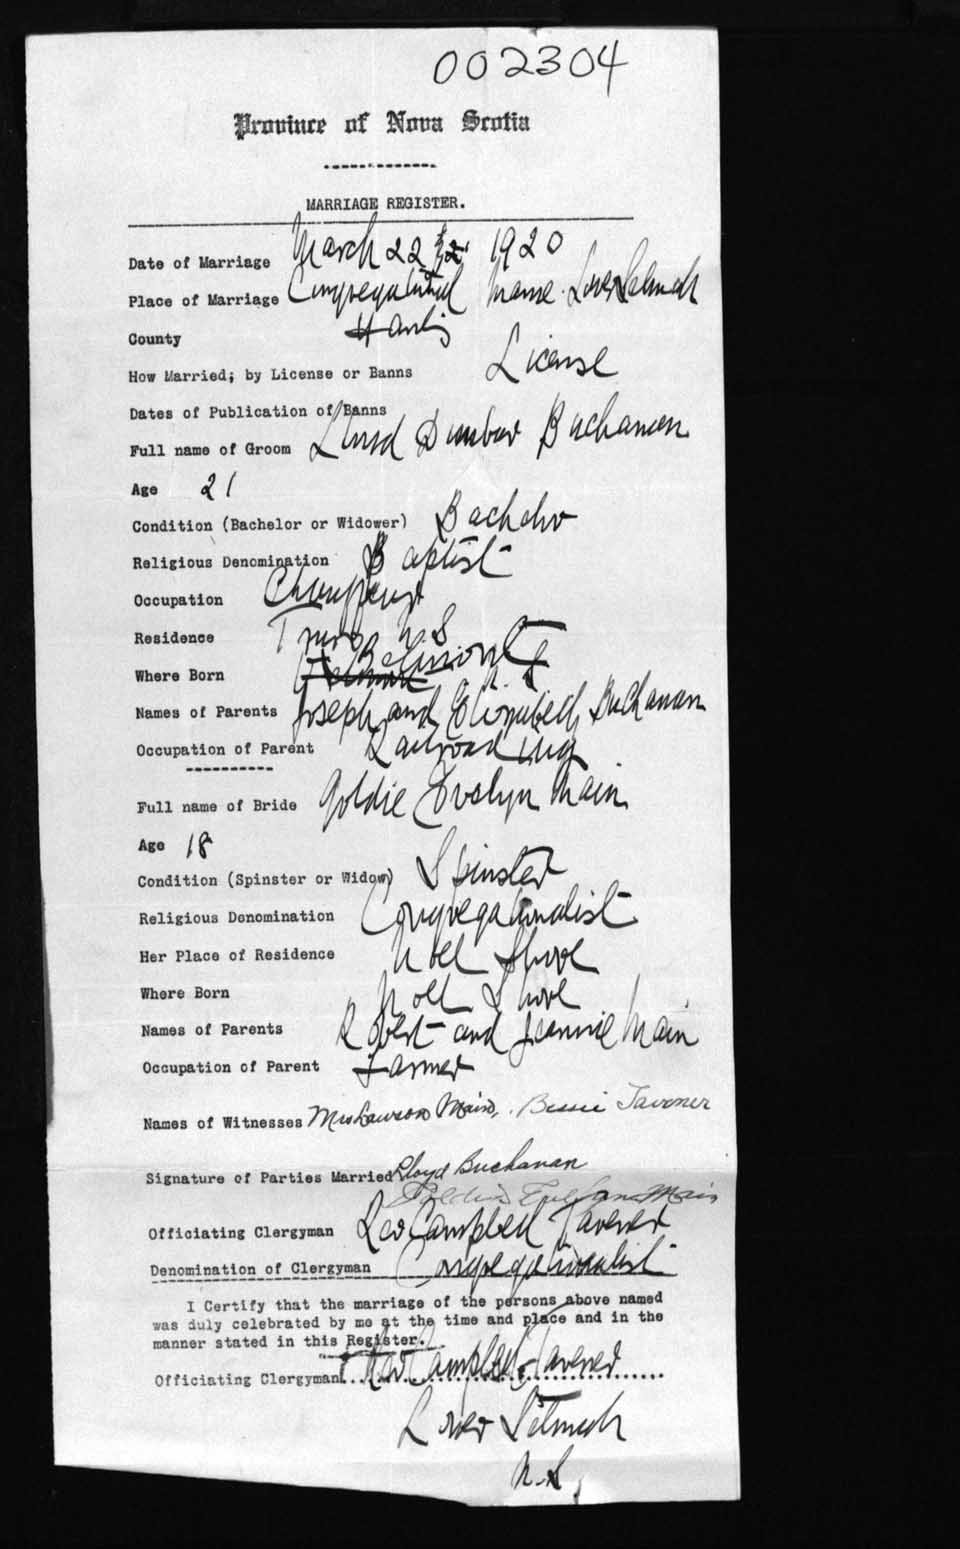 002304
Province of Nova Scotia
MARRIAGE REGISTER.
Date of Marriage March 22 1920
Place of Marriage Congregational Manse. Lower Selmah
County Hants
How Married; by License or Banns License
Dates of Publication of Banns
Full name of Groom Lloyd Dunbar Buchanan
Age 21
Condition (Bachelor or Widower) Bachelor
Religious Denomination Baptist
Occupation Chauffeur
Residence Truro N.S
Where Born Belmont N.S
Names of Parents Joseph and Elizabeth Buchanan
Occupation of Parent Railroading
Full name of Bride Goldie Evelyn Main
Age 18
Condition (Spinster or Widow) Spinster
Religious Denomination Congregationalist
Her Place of Residence Noel Shore
Where Born Noel Shore
Names of Parents Robert and Jeannie Main
Occupation of Parent Farmer
Names of Witnesses Mrs Lawson Main, Bessie Taverner
Signature of Parties Married Lloyd Buchanan
Main
Officiating Clergyman Rev Campbell Taverner
Denomination of Clergyman Congregationalist
I Certify that the marriage of the persons above named
was duly celebrated by me at the time and place and in the
manner stated in this Register.
Officiating Clergyman Rev Campbell Taverner
Lower Selmah
N.S